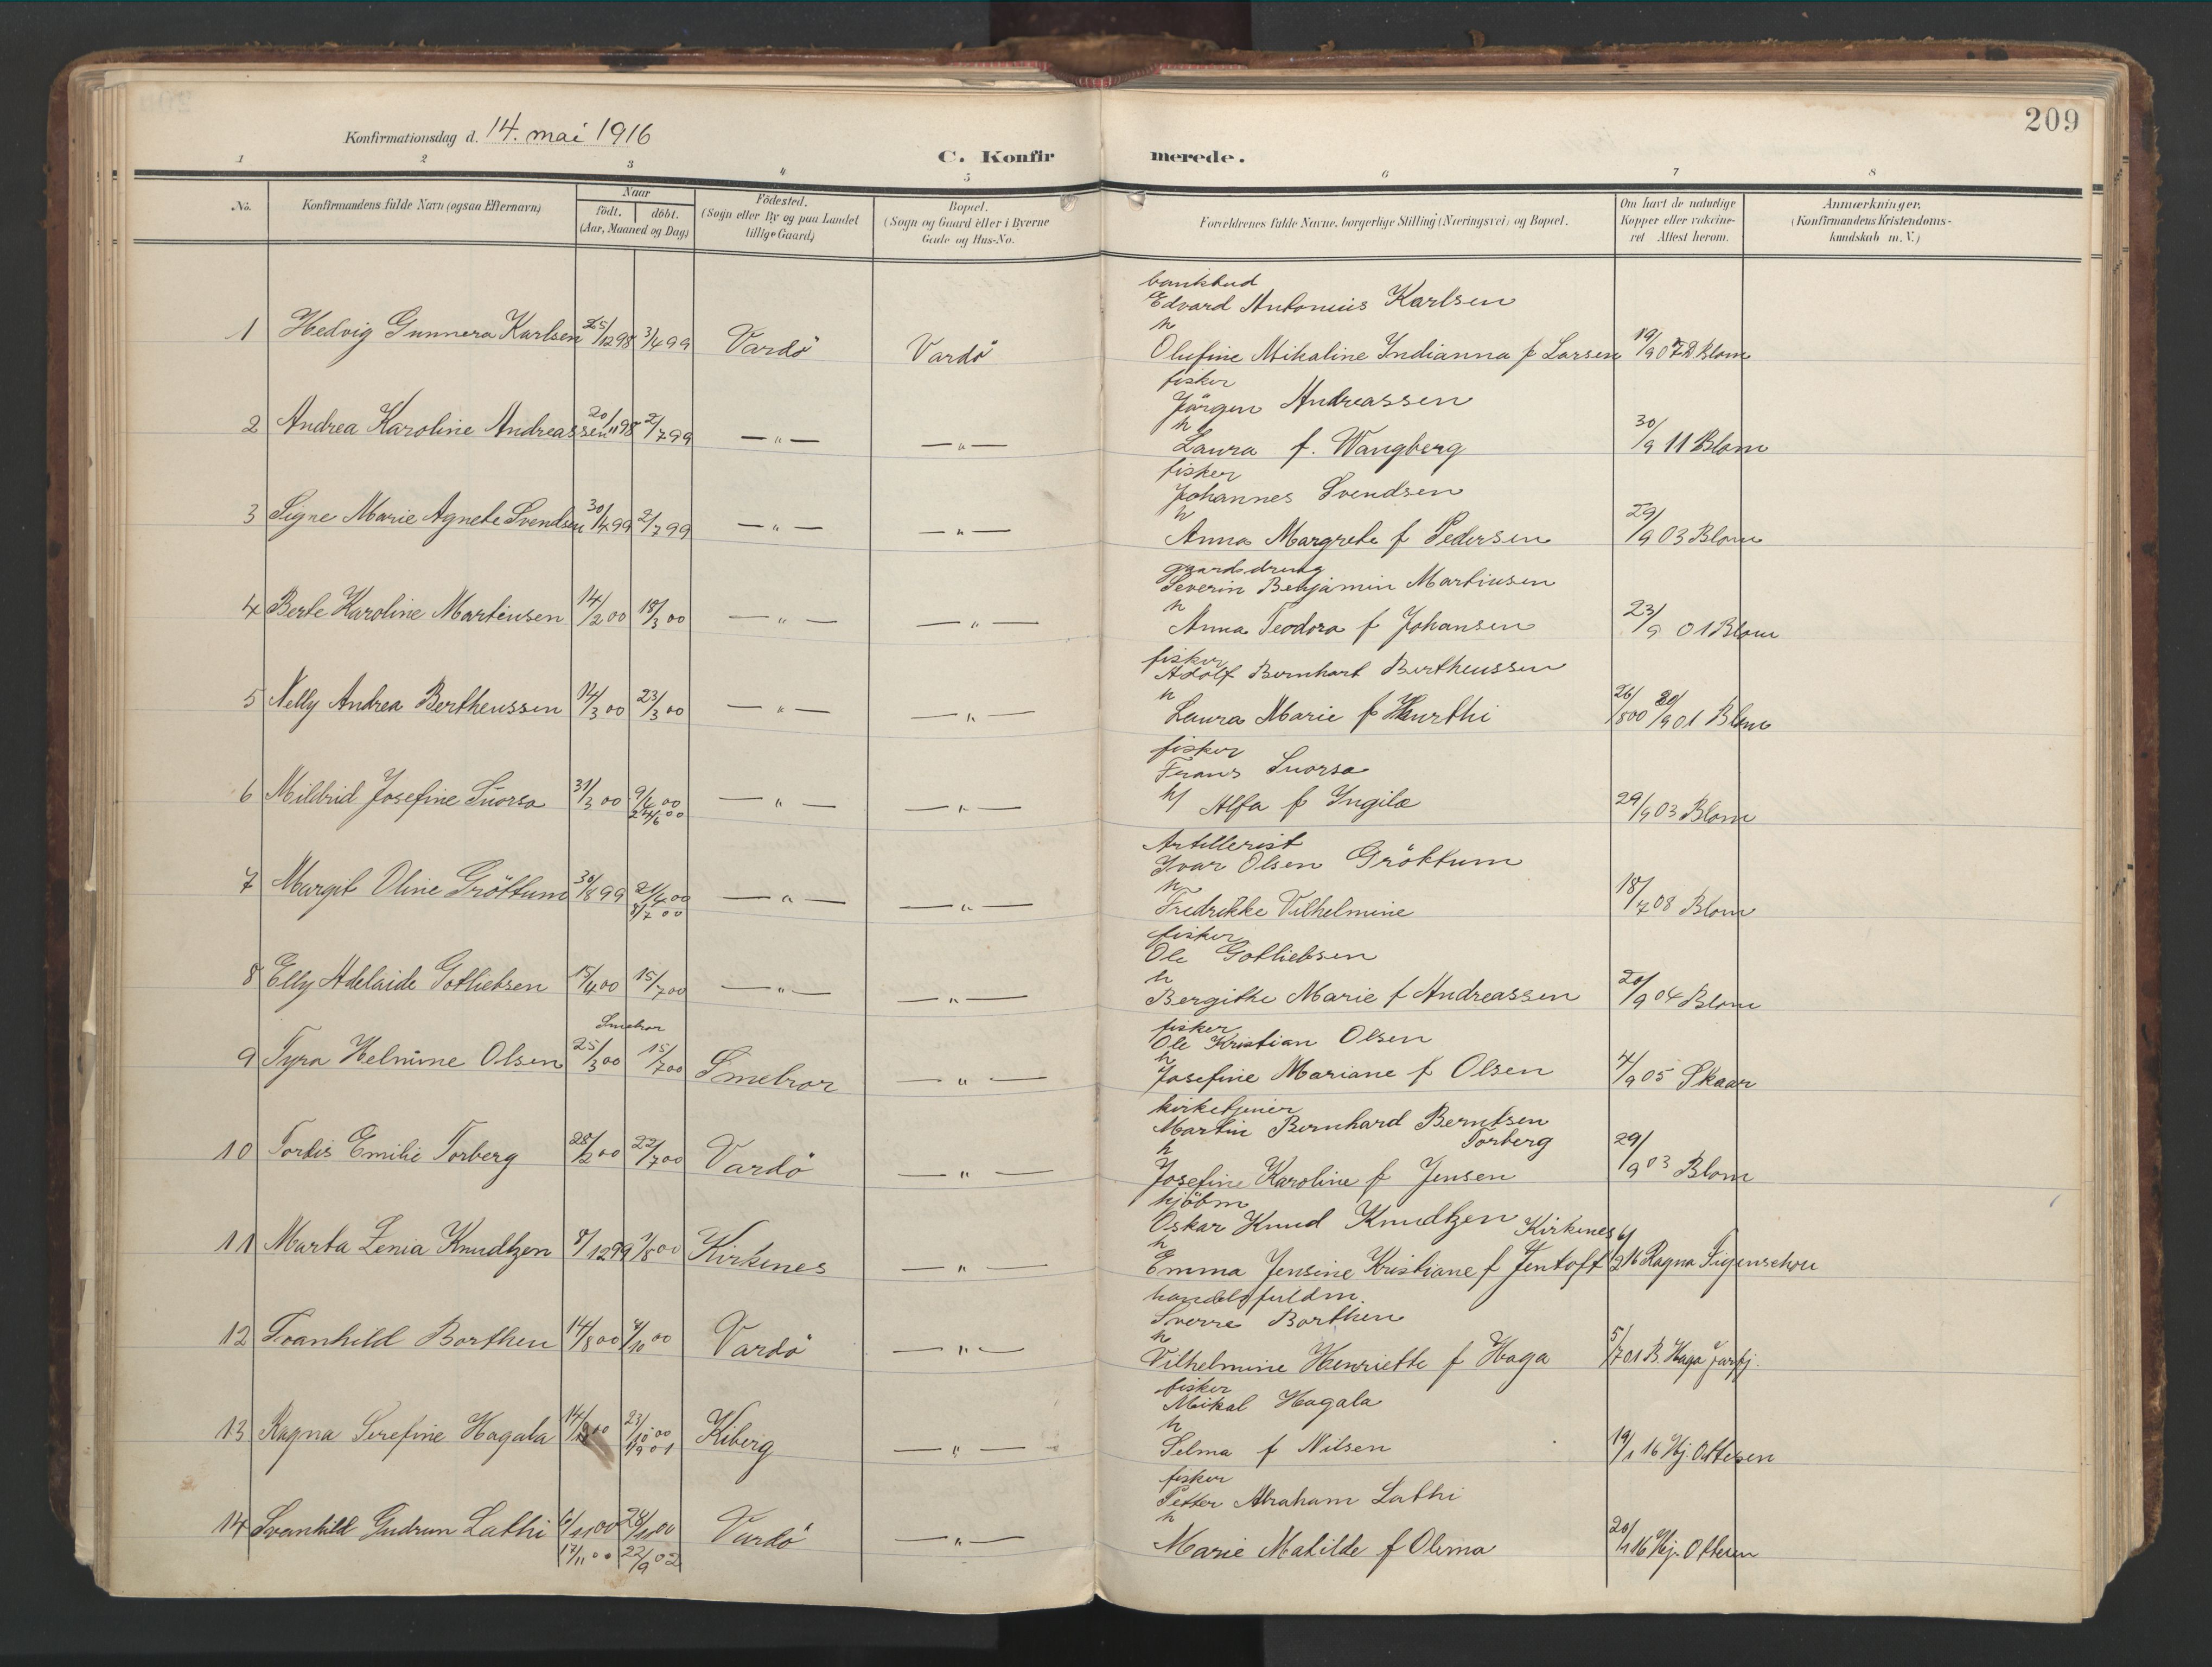 209
Konfirmationsdag d. 14. mai 1916
C. Konfirmerede.
1 2 3 4 5 6 7 8
No.
Konfirmandens fulde Navn (ogsaa Efternavn)
Naar
født. døbt.
(Aar, Maaned og Dag)
Fødested.
(Sogn eller By og paa Landet
tillige Gaard)
Bopæl.
(Sogn og Gaard eller i Byerne
Gade og Hus-No.
Forældrenes fulde Navne, borgerlige Stilling (Næringsvei) og Bopæl.
Om havt de naturlige
Kopper eller vakcine-
ret Attest herom.
Anmærkninger.
(Konfirmandens Kristendoms-
kundskab m. V.)
bankbud
Edvard Antonius Karlsen
h
1 Hedvig Gunnera Karlsen 25/12 98 3/4 99 Vardö Vardö Olufine Mikaline Indianna f Larsen 19/9 07 Blom
fisker
Jörgen Andreassen
h
2 Andrea Karoline Andreassen 20/11 98 2/7 99 — " — — " — Laura f. Wangberg 30/9 11 Blom
fisker
Johannes Svendsen
h
3 Signe Marie Agnete Svendsen 30/4 99 2/7 99 — " — — " — Anna Margrete f Pedersen 29/9 03 Blom
gaardsdreng
Severin Benjamin Martinsen
h
4 Berte Karoline Martinsen 14/2 00 18/3 00 — " — — " — Anna Teodora f Johansen 23/9 01 Blom
fisker
Adolf Bernhart Bertheussen
h
5 Nelly Andrea Bertheussen 14/3 00 23/3 00 — " — — " — Laura Marie f Hurthi 26/8 00 20/9 01 Blom
fisker
Frans Suorsa
6 Mildrid Josefine Suorsa 31/3 00 9/4 00 — " — — " — h/ Alfa f Yngila 29/9 03 Blom
24/6 00
Artillerist
Ivar Olsen Gröttum
h
7 Margit Oline Gröttum 30/8 99 21/4 00 — " — — " — Fredrikke Vilhelmine 18/7 08 Blom
8/7 00
fisker
Ole Gotliebsen
h
8 Elly Adelaide Gotliebsen 15/4 00 15/7 00 — " — — " — Bergitte Marie f Andreassen 20/9 04 Blom
Smelror
fisker
Ole Kristian Olsen
h
9 Tyra Helmine Olsen 25/3 00 15/7 00 Smelror — " — Josefine Mariane f Olsen 4/9 05 Skaar
kirketjener
Martin Bernhard Berntsen
Torberg
h
10 Tordis Emilie Torberg 28/2 00 22/7 00 Vardö — " — Josefine Karoline f Jensen 29/9 03 Blom
kjöbm
Oskar Knud Knudtzen Kirkenes
h
11 Marta Zenia Knudtzen 8/12 99 /8 00 Kirkenes — " — Emma Jensine Kristiane f Jentoft /2 16 Ragna Sigenschou
handelsfuldm.
Sverre Borthen
h
12 Svanhild Borthen 14/8 00 /10 00 Vardö — " — Vilhelmine Henriette f Haga 5/7 01 B. Haga
fisker
Mikal Hagala
h
13 Ragna Serefine Hagala 14/ 00 23/10 00 Kiberg — " — Selma f Nilsen 19/1 16 Hj. Ottesen
/9 01
fisker
Petter Abraham Lathi
h
14 Svanhild Gudrun Lathi 6/11 00 28/11 00 Vardö — " — Marie Matilde f Olima 20/1 16 Hj. Ottesen
17/11 00 22/9 02